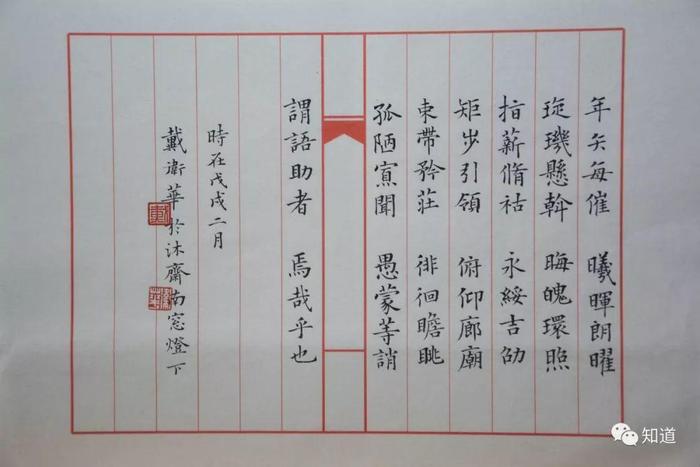 年矢每催 曦暉朗曜
琁璣懸斡 晦魄環照
指薪脩祜 永綏吉劭
矩步引領 俯仰廊廟
束帶矜莊 徘徊瞻眺
孤陋寡聞 愚蒙等誚
謂語助者 焉哉乎也
時在戊戌二月
戴衛華於沐齋南窓燈下
知道